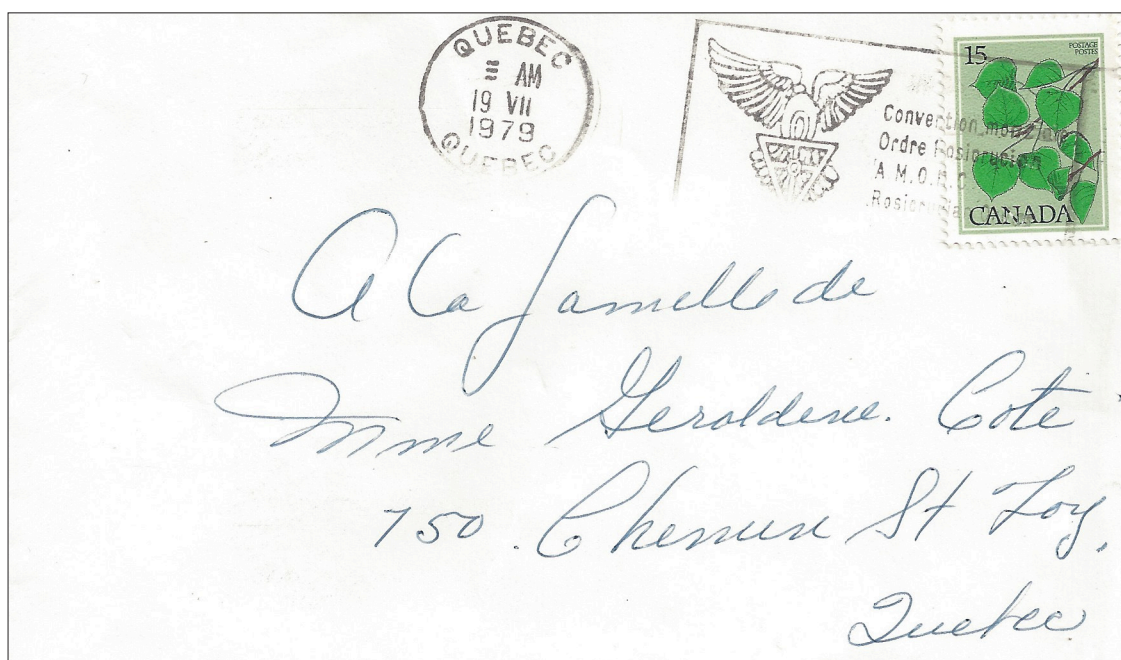 QUEBEC
AM
19 VII
1979
QUEBEC
Convention mondiale
Ordre Rosicrucien
A.M.O.R.C.
15
POSTAGE
POSTES
CANADA
A la famille de
Mme Geraldene Cote
750 Chemin St Foy,
Quebec